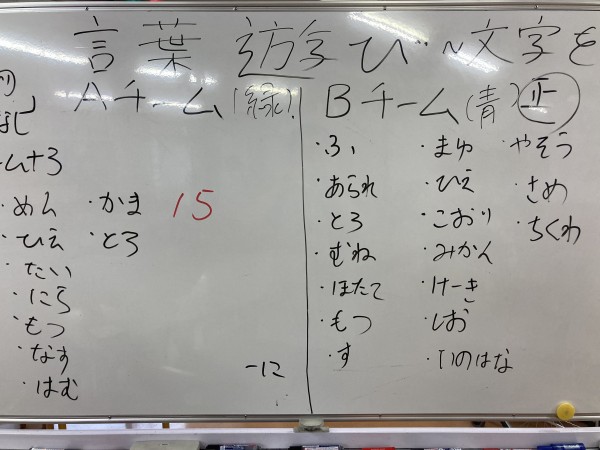 言葉遊び～文字を
Aチーム(緑)
15
・めん
・ひえ
・たい
・にら
・もつ
・なす
・はむ
・かま
・とろ
Bチーム(青)
・ふ
・あられ
・とろ
・むね
・ほたて
・もつ
・す
・まゆ
・ひえ
・こおり
・みかん
・けーき
・しお
・いのはな
・やそう
・さめ
・ちくわ